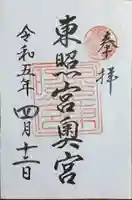 奉拝
東照宮奥宮
令和五年四月十三日